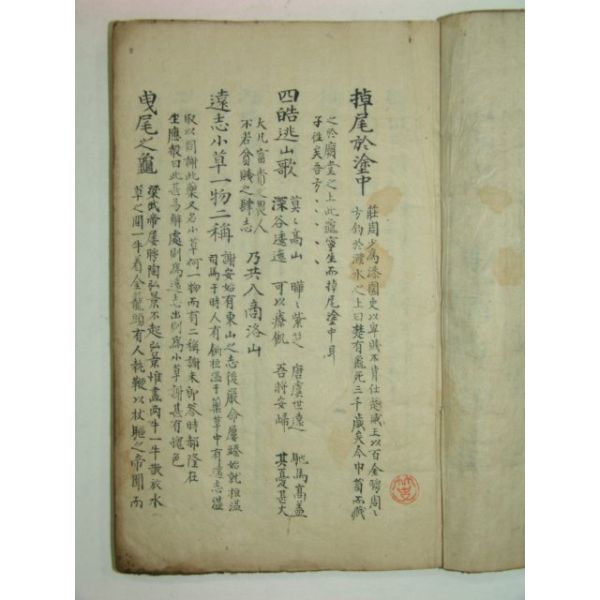 掉尾於塗中
莊周少為漆園史以卑賤不肯仕楚威王以百金聘周〻
方釣於濮水之上曰楚有龜死三千歲矣今巾笥而藏
之於廟堂之上此龜寧生而掉尾塗中耳
子往矣吾方〻〻〻〻
四皓逃山歌
莫〻高山 曄〻紫芝 唐虞世遠 馳馬高盖
深谷逶迤 可以療飢 吾將安歸 其憂甚大
大凡富貴之畏人
不若貧賤之肆志
乃共入商洛山
遠志小草一物二稱
謝安始有東山之志後嚴命屢臻始就桓溫
司馬于時人有餉桓溫于藥草中有遠志溫
取以問謝此藥又名小草何一物而有二稱謝未即答時郝隆在
坐應聲曰此甚易解處則為遠志出則為小草謝甚有愧色
曳尾之龜
梁武帝屢聘陶弘景不起弘景惟畫兩牛一牛散放水
草之間一牛着金籠頭有人執鞭以杖驅之帝聞而